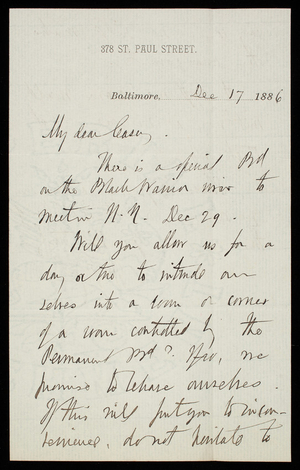 378 ST. PAUL STREET.
Baltimore, Dec 17 1886
My dear Casey,
There is a special Bd
on the Black Warrior river to
meet in N.N. Dec 29.
Will you allow us for a
day or two to intrude our
selves into a room or corner
of a room controlled by the
Permanent Brd? If so, we
promise to behave ourselves.
If this will put you to incon-
venience, do not hesitate to